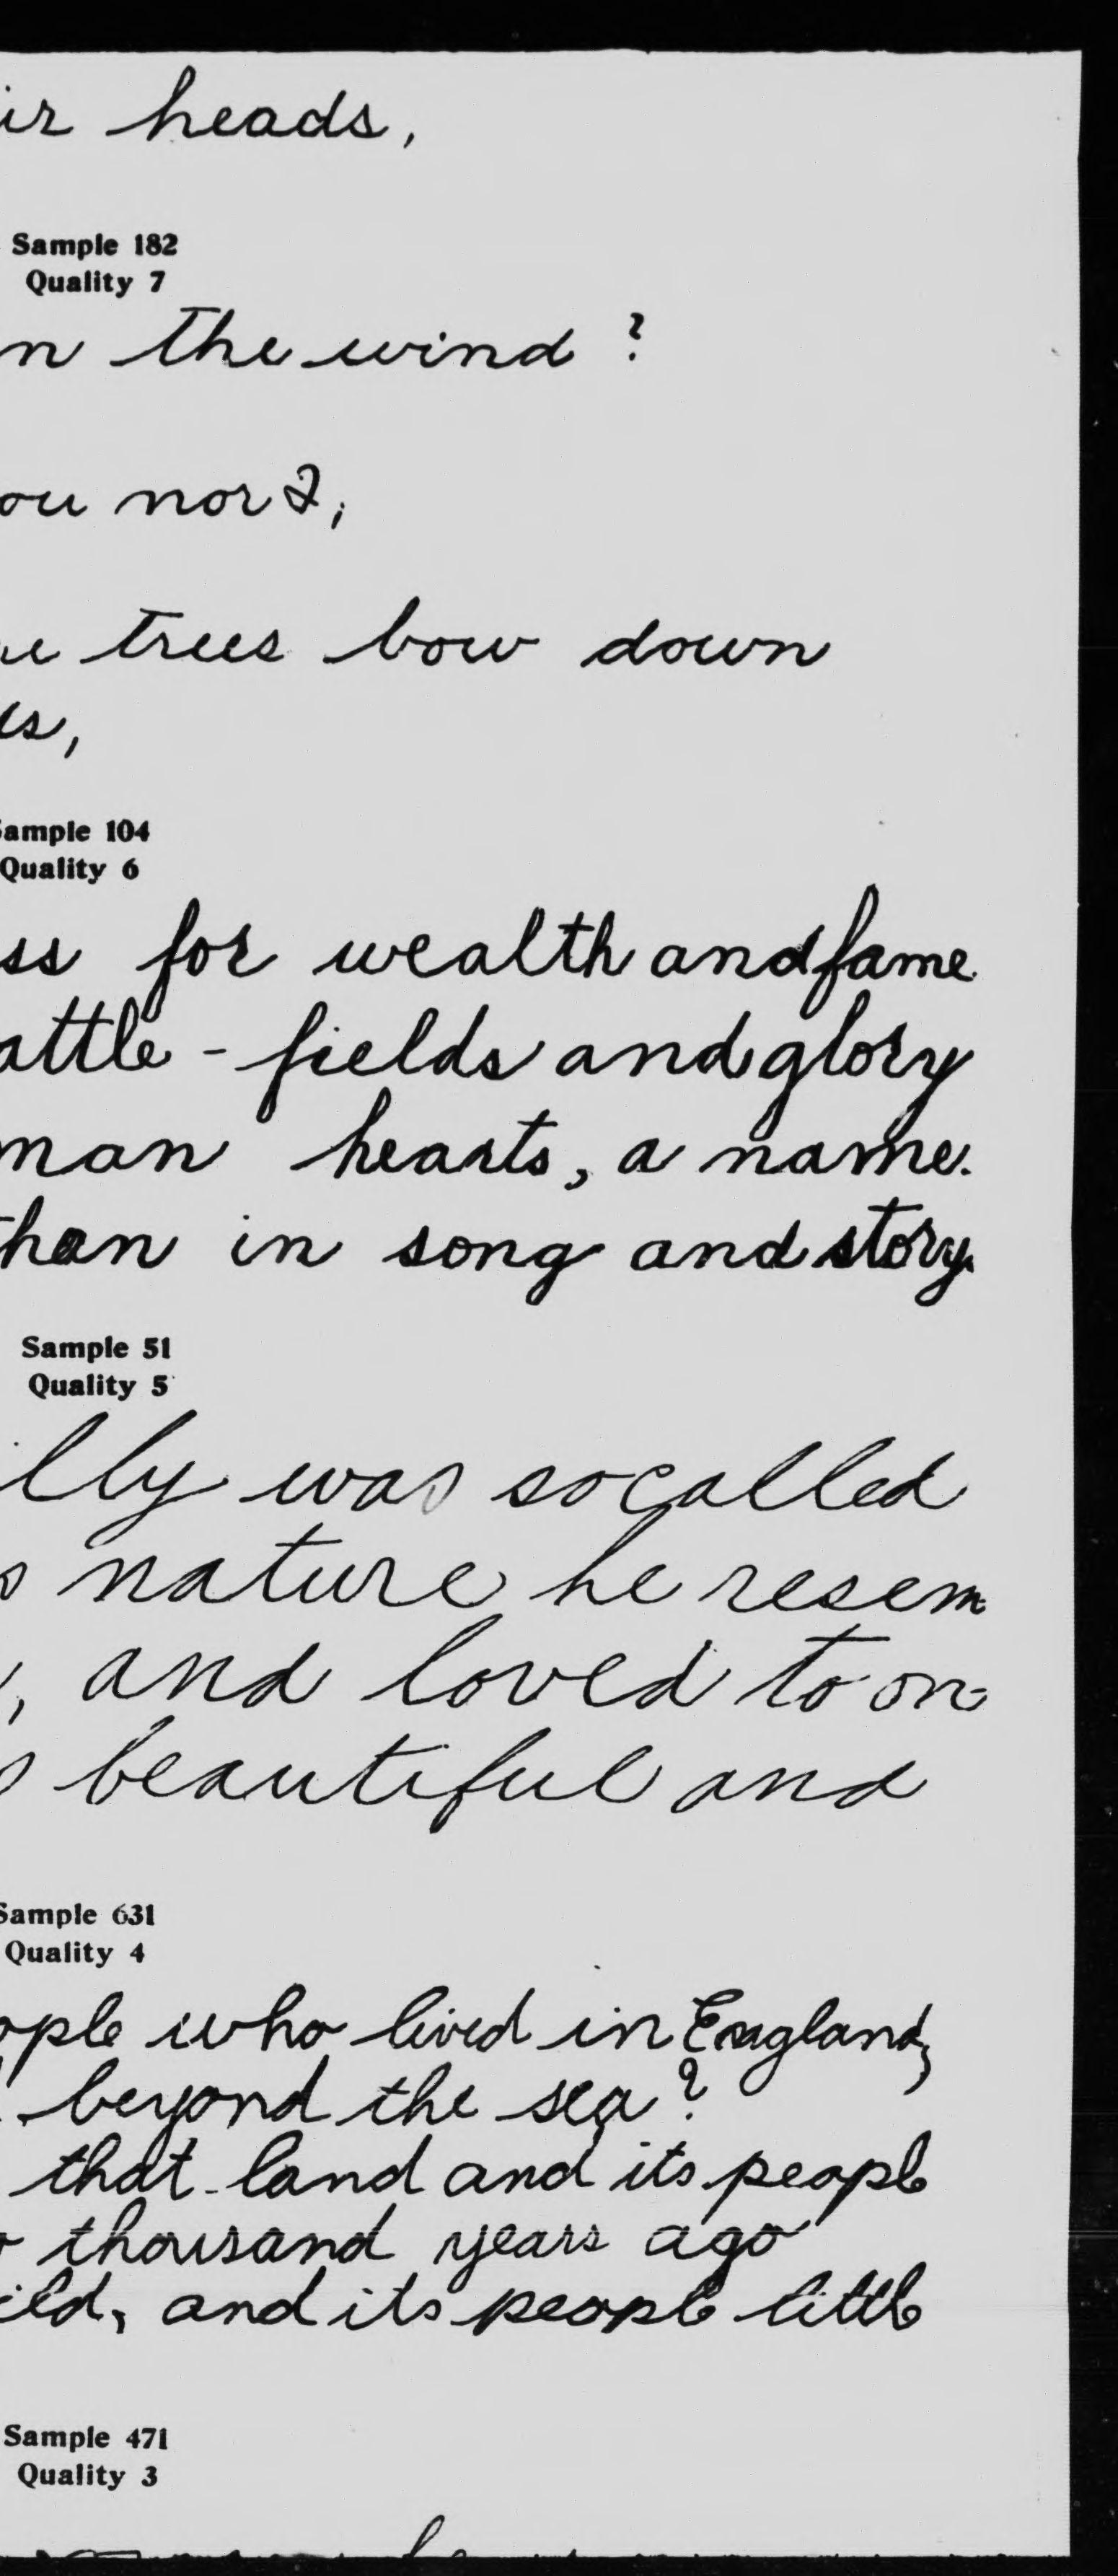 ir heads,
Sample 182
Quality 7
n the wind ?
ou nor I,
trees bow down
Sample 104
Quality 6
ss for wealth and fame
attle - fields and glory
man hearts, a name.
than in song and story.
Sample 51
Quality 5
illy was so called
nature he resem
, and loved to on
beautiful and
Sample 631
Quality 4
ople who lived in England,
beyond the sea?
that land and its people
thousand years ago
ild, and its people little
Sample 471
Quality 3